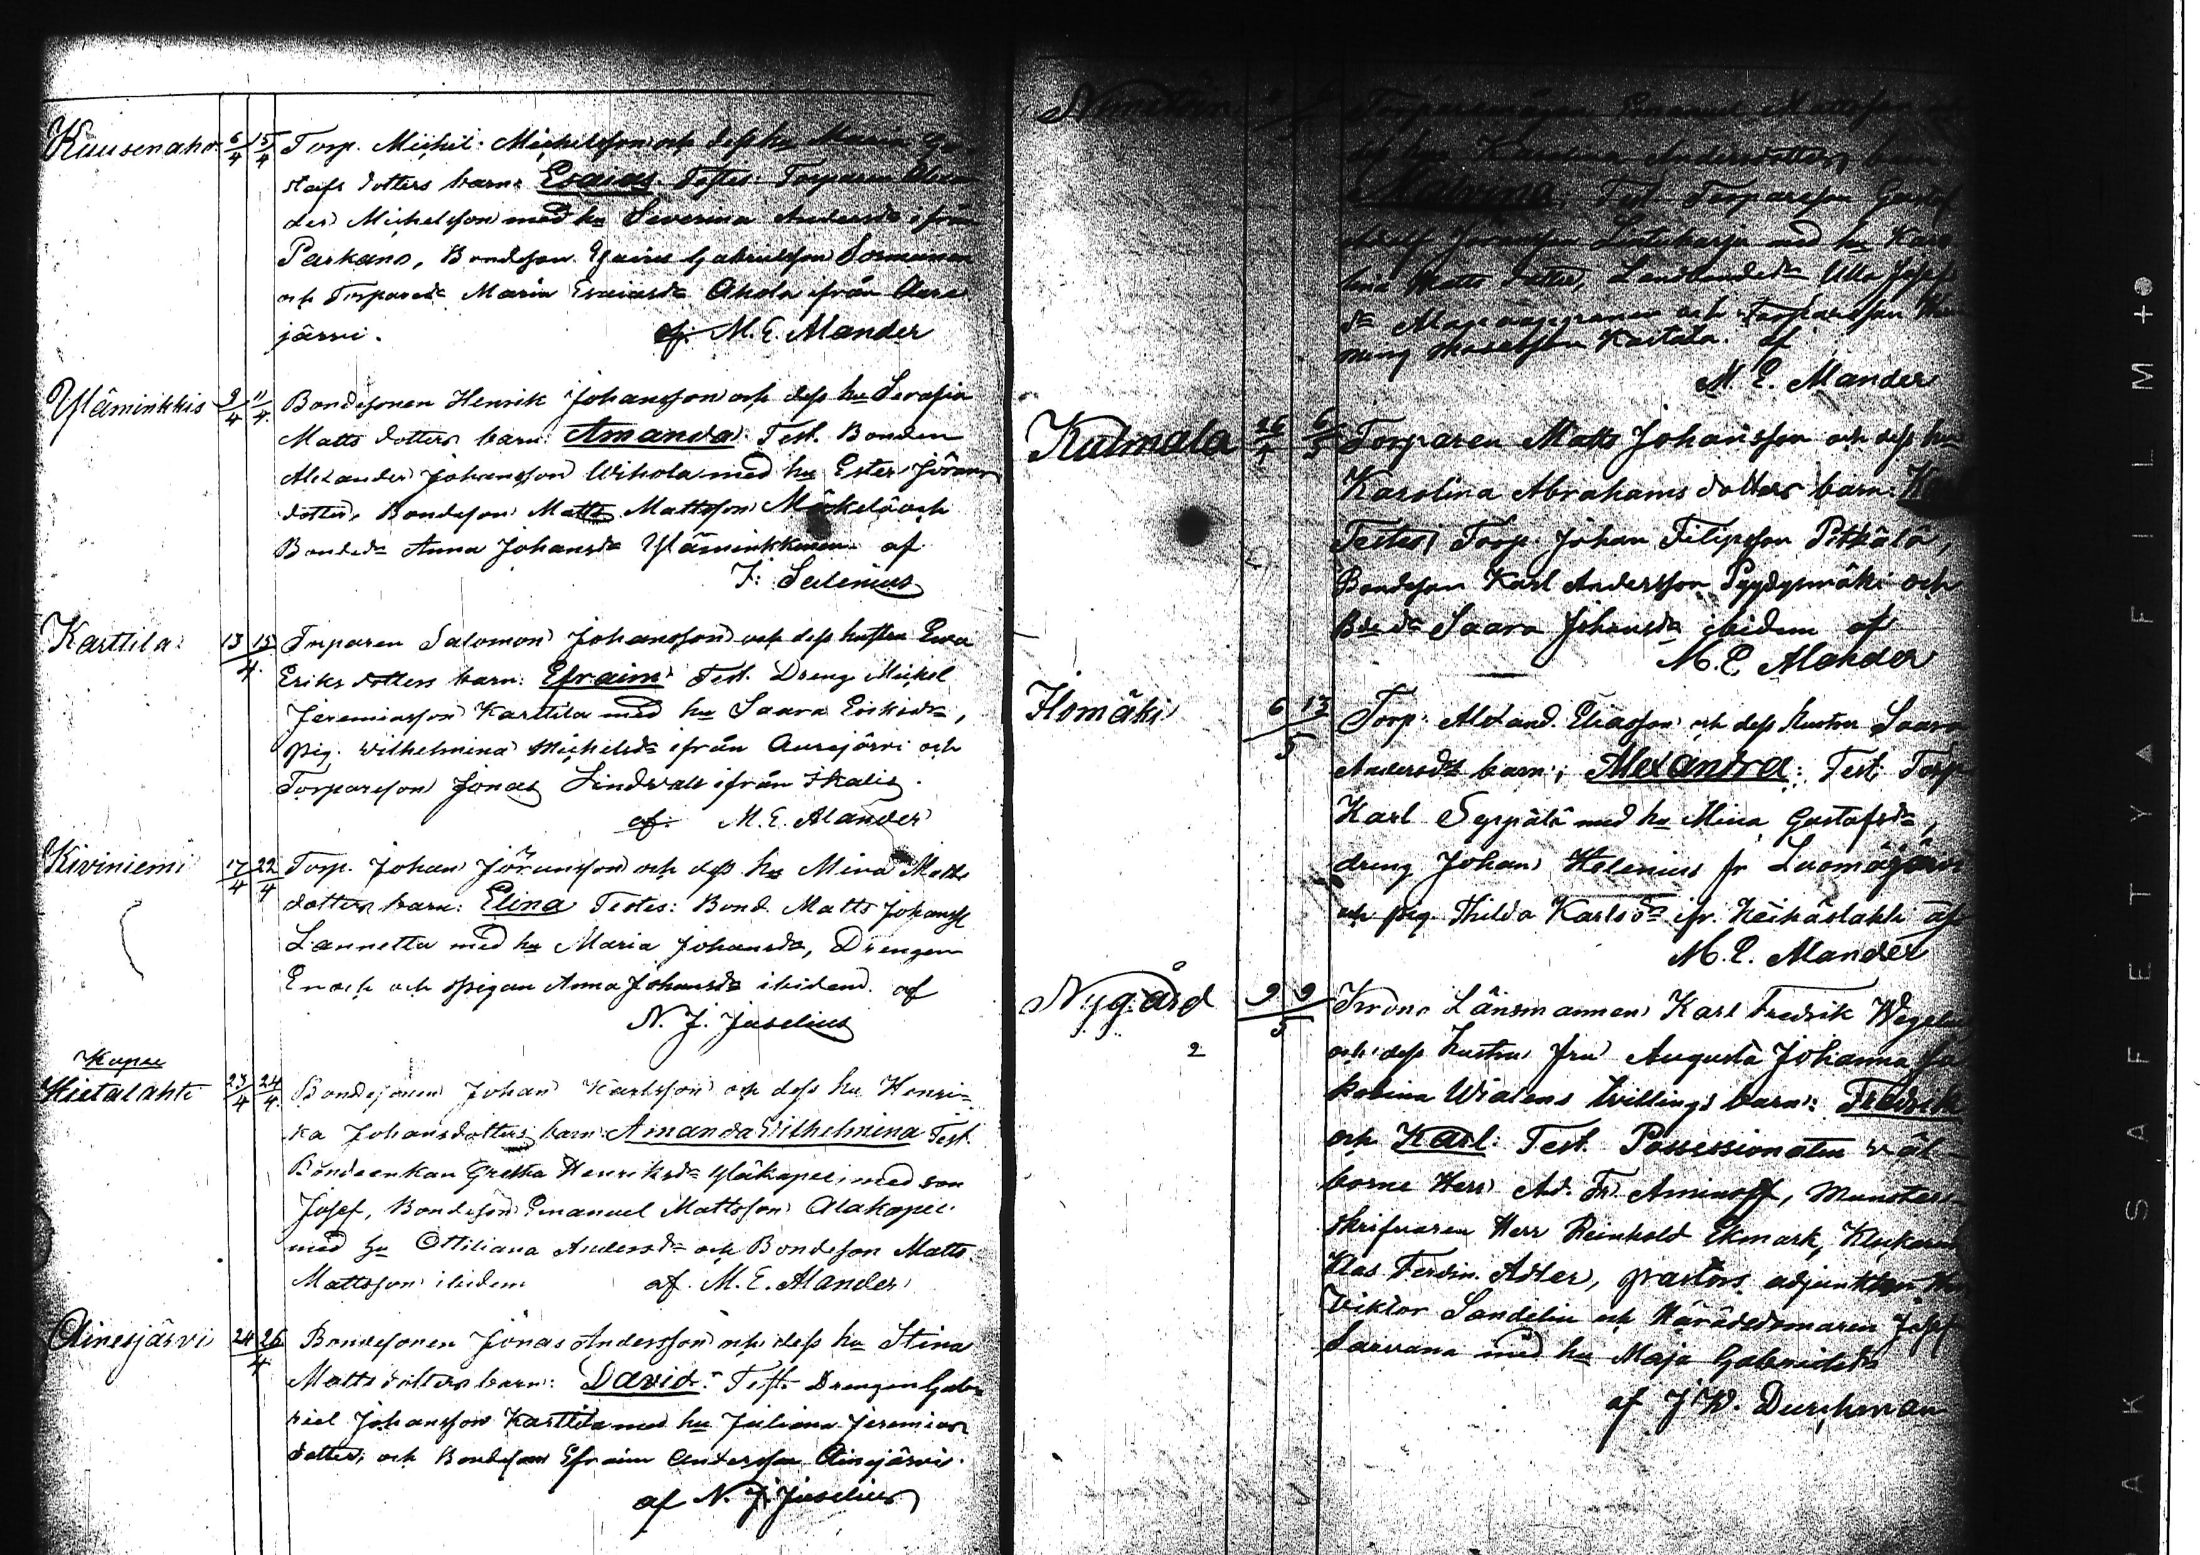 Kuusenaho 6/4 15/4 Torp. Michil: Michelsson och dess hu Maria Gu
stafs dotters barn: Esaias. Testes: Torparen Alexan
der Michelsson med hu Severina Andersda ifrån
Parkano, Bondeson Gabrielsson Sormunen
och Torpareda Maria Esaiasda Ahola ifrån Aure
järvi. af. M. E. Alander
Yläminkkis 9/4 11/4 Bondesonen Henrik Johansson och dess hu Serafia
Matts dotters barn: Amanda. Test. Bonden
Alexander Johansson Wihola med hu Ester Jöran
dotter, Bondeson Matts Mattsson Mäkelä och
Bondeda Anna Johansda Yläminkkinen. af
F. Salenius
Karttila 13 15/4 Torparen Salomon Johansson och dess hustru Eva
Eriks dotters barn: Efraim Test. Dreng Mickel
Jeremiasson Karttila med hu Saara Eriksda,
pig. Wilhelmina Michelsda ifrån Aurejärvi och
Torpareson Jonas Lindvall ifrån Ikalis.
af. M. E. Alander
Kiviniemi 17/4 22/4 Torp. Johan Göransson och dess hu Mina Matts
dotters barn: Elina Testes: Bond. Matts Johanss
Lannetta med hu Maria Johansda, Drengen
Enoch och pigan Anna Johansda ibidem. af
N. J. Juselius
Kapee
Hietalahti 23/4 24/4 Bondesonen Johan Karlsson och dess hu Henri-
ka Johansdotters barn: Amanda Vilhelmina Test.
Bondeenkan Gretha Henriksda Yläkapee, med son
Josef, Bondeson Emanuel Mattsson Alakapee
med hu Ottiliana Andersda och Bondeson Matts
Mattsson ibidem af. M. E. Alander
Ainesjärvi 24 26/4 Bondesonen Jonas Andersson och dess hu Stina
Matts dotters barn: David. Test. Drengen Gab-
riel Johansson Karttila med hu Juliana Jeremias
dotter, och Bondeson Efraim Andersson Ainesjärvi.
af N. J. Juselius
Karolina Andersdotters barn
Test. Torpareson Gustaf
Adolf med hu Karo
lina Matts dotter, Ulla Josef
da och Torpareson
Karttila. af
M. E. Alander
Kulmala 26/4 6/5 Torparen Matts Johansson och dess hu
Karolina Abrahams dotters barn:
Testes Torp. Johan Filipsson Pitkälä,
Bondeson Karl Andersson Pyydysmäki och
Bdeda Saara Johansda ibidem af
M. E. Alander
Ilomäki 6 13/5 Torp. Alexand. Eliasson och dess hustru Saara
Andersda barn; Alexandra: Test. Torp
Karl Seppälä med hu Mina Gustafsda,
dreng Johan Helenius fr Luomajärvi
och pig. Hilda Karlsda ifr. Keihäslahti af
M. E. Alander
Nygård 9 9/5 Krono Länsmannen Karl Fredrik Wegeli
2 och dess hustru fru Augusta Johanna Ja
kobina Wialens tvillings barn: Fredrik
och Karl: Test. Possessionaten väl-
borne Herr Ad. Fr. Aminoff, Munster-
skrifvaren Herr Reinhold Ekmark, Klockaren
Klas Ferdin. Adler, pastors adjunkten
Viktor Sandelin och Häradsdomaren Josef
Sarvana med hu Maja Gabrielsda
af J W. Durchman
SAFETYAFILM